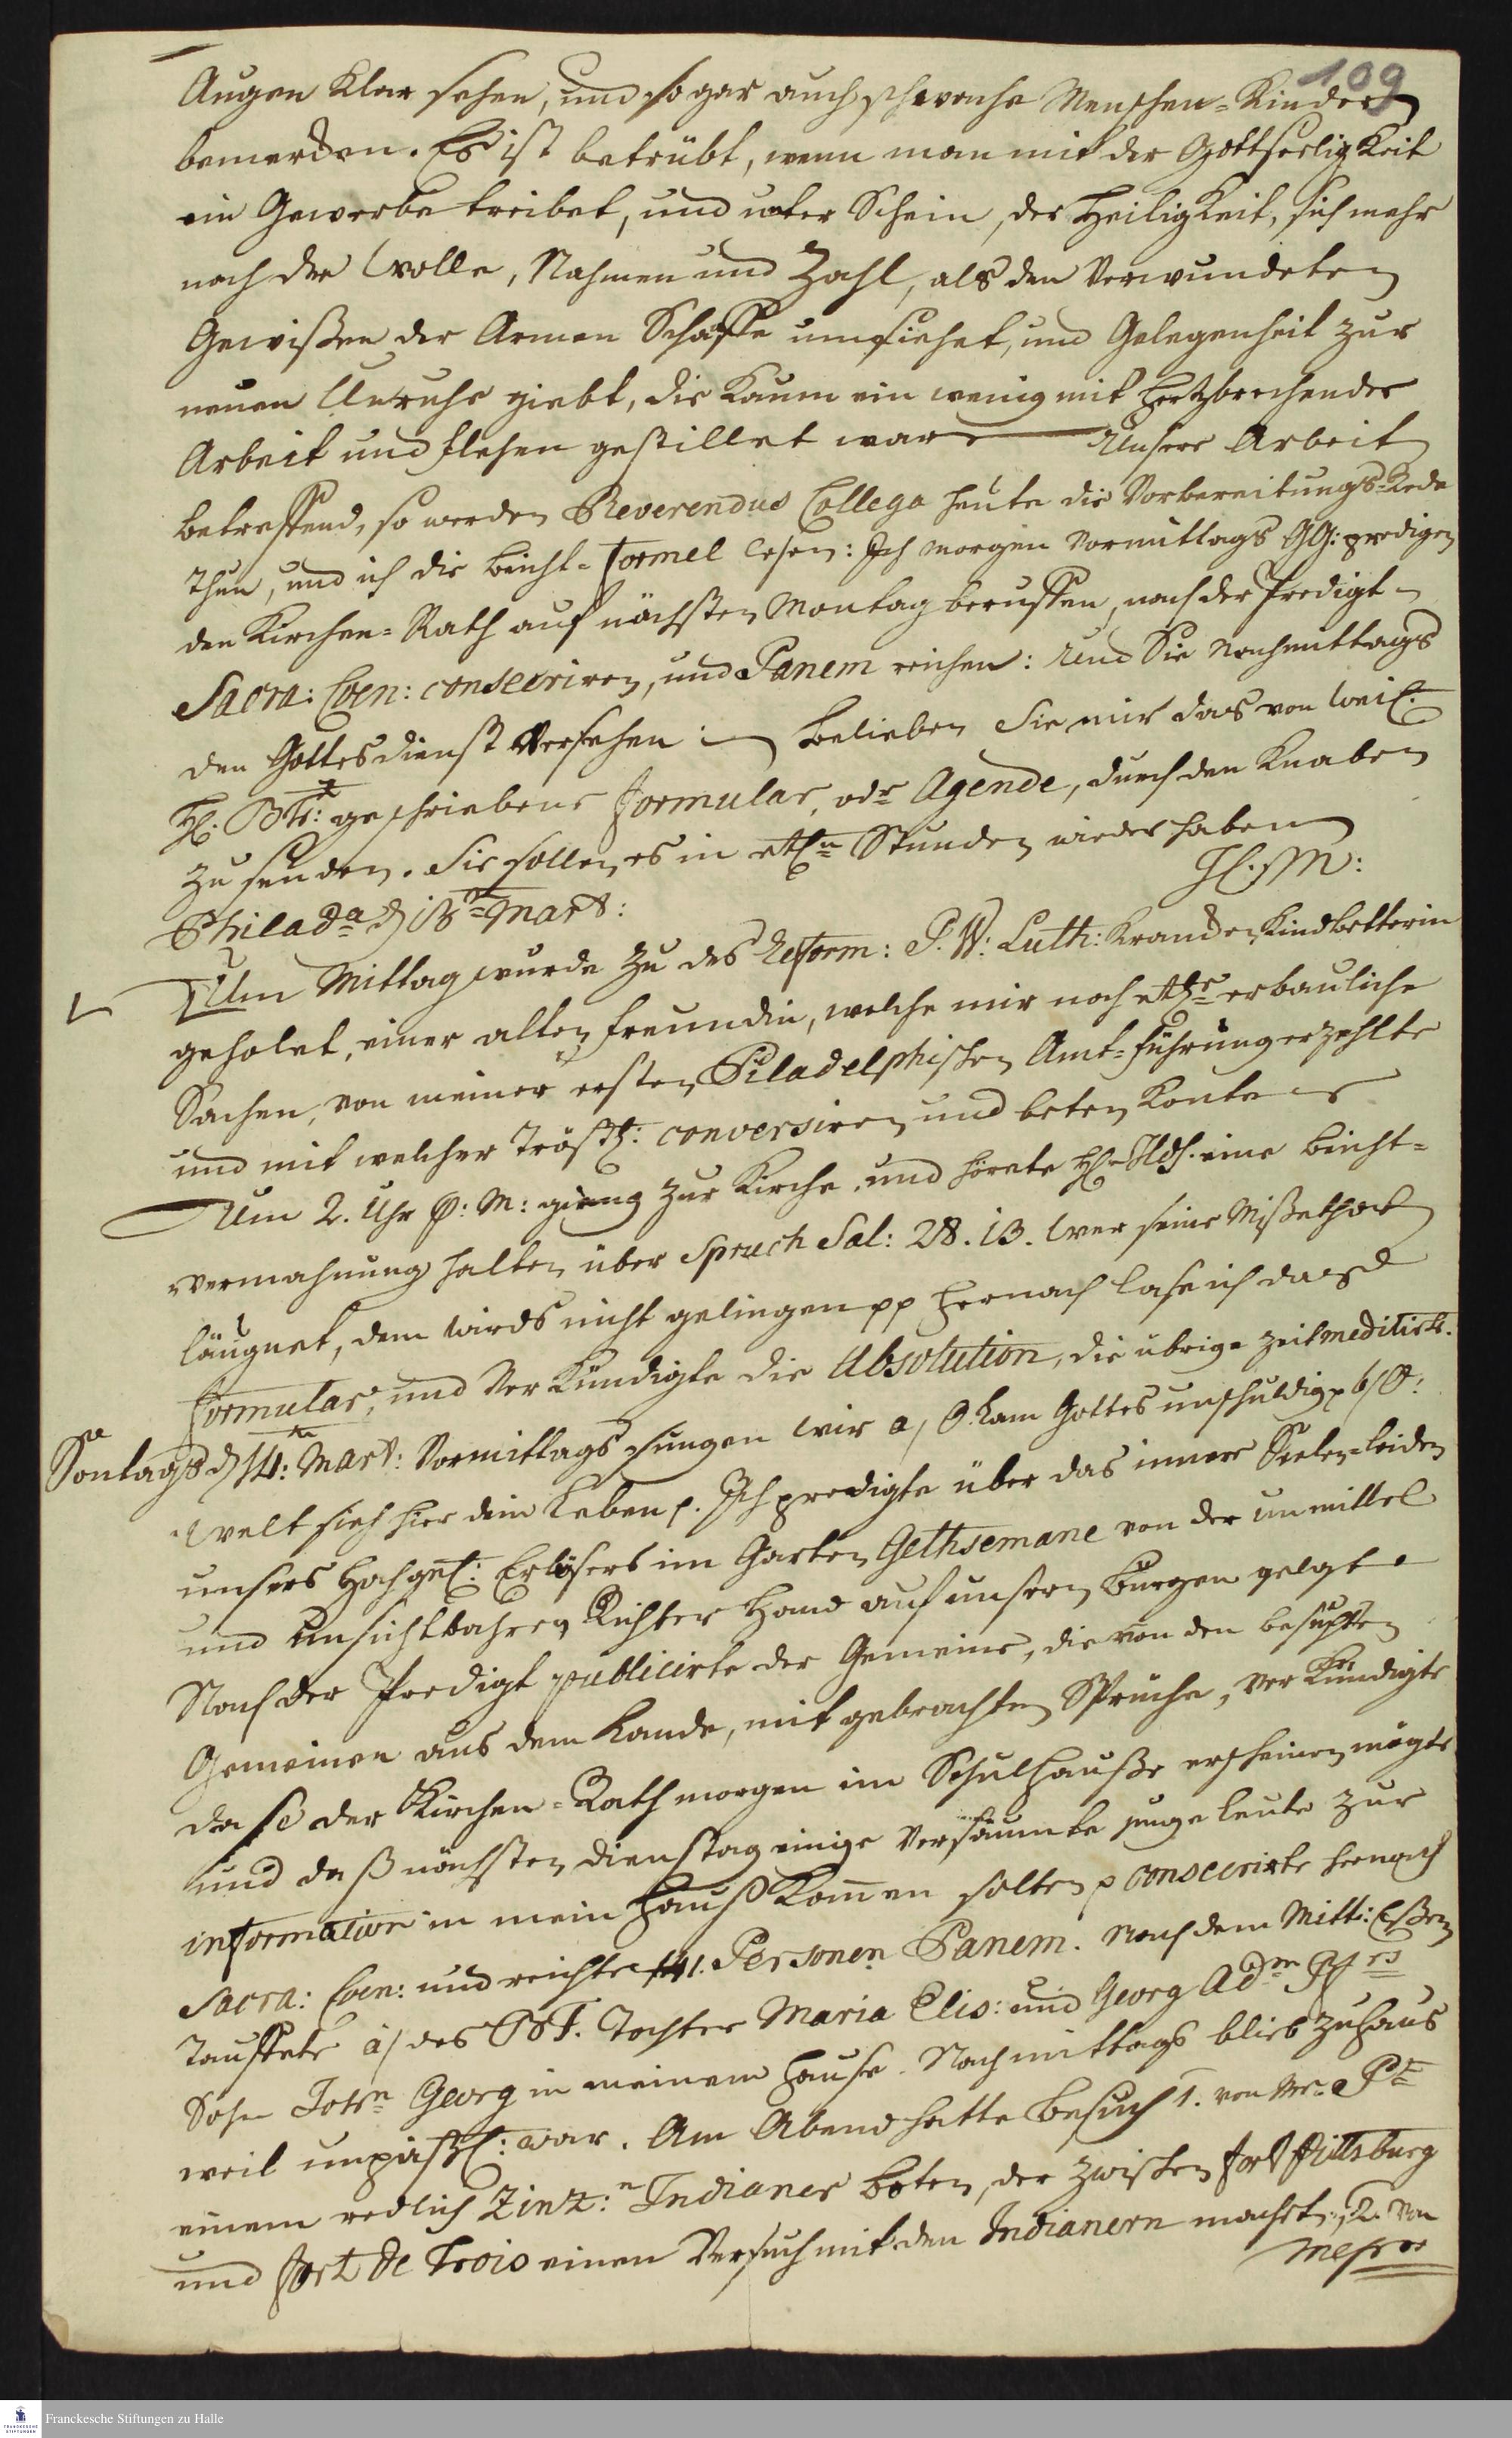 109
Augen klar sehen, und so gar auch schwache Menschen-Kinder
bemercken. Es ist betrübt, wenn man mit der Gottseeligkeit
ein Gewerbe treibet, und unter Schein, der Heiligkeit, sich mehr
nach der Wolle, Nahmen und Zahl, als den Verwundeten
Gewißen der Armen Schaffe umsiehet, und Gelegenheit zur
neuen Unruhe giebt, die kaum ein wenig mit hertzbrechender
Arbeit und flehen gestillet ware Unsere Arbeit
betreffend, so werden Reverendus Collega heute die Vorbereitungs-Rede
thun, und ich die Beicht-formel lesen: Ich morgen Vormittags GG: predigen
den Kirchen-Rath auf nächsten Montag beruffen, nach der Predigt
Sacra: Coen: consecriren, und Panem reichen: Und Sie Nachmittags
den Gottesdienst Versehen Belieben Sie mir das von weil.
H. Btr: geschriebene Formular, odr Agende, durch den Knaben
zu senden. Sie sollen es in etln Stunden wieder haben
H. M:
Philada d 13 Mart:
Um Mittag wurde zu des Reform: P. W: Luth: Krancken Kindbetterin
geholet, einer alten freundin, welche mir noch etle erbauliche
Sachen, von meiner ersten Piladelphischen Amt-führung erzehlte
und mit welcher tröstl: conversiren und beten konte
Um 2. Uhr P: M: gieng zur Kirche, und hörete H. Hlds. eine Beicht-
vermahnung halten über Spruch Sal: 28. 13. Wer seine Mißethat
läugnet, dem wirds nicht gelingen pp Hernach lase ich das
formular, und Verkündigte die Absolution, die übrige zeit meditirt.
Sontags d 14: Mart: Vormittags sungen wir a, O Lam Gottes unschuldig p b/ O:
Welt sieh hier dein Leben p. Ich predigte über das innere Seelen-leiden
unsers Hochgel: Erlösers im Garten Gethsemane von der unmittel
und unsichtbahren Richter Hand auf unsern Bürgen gelegt
Nach der Predigt publicirte der Gemeine, die von den besuchten
Gemeinen aus dem Lande, mit gebrachten Sprüche, Verkündigte
dase der Kirchen-Rath morgen im Schulhauße erscheinen mögte
und daß nächsten Dienstag einige Versäumte junge leute zur
information in mein Hauß kommen solten p consecrirte hernach
Sacra: Coen: und reichte 141. Personen Panem. Nach dem Mitt: Eßen
Tauffete a/ des Tochter Maria Elis: und Georg Adm
Sohn John Georg in meinem Hause. Nachmittags blieb zuhaus
weil unpäßl: war. Am Abend hatte Besuch 1. von Mr.
einem redlich Zinz:n Indianer Boten, der zwischen fort Pittsburg
und fort de Trois einen Versuch mit den Indianern machet, 2. von
Franckesche Stiftungen zu Halle